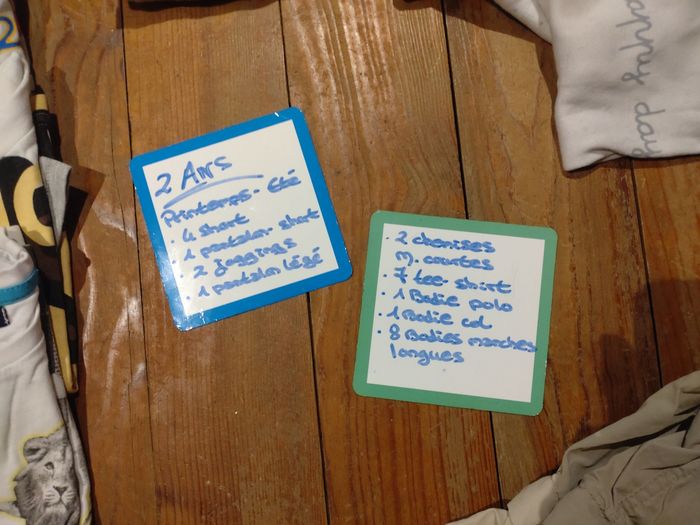 2 Ans
Printemps - Eté
• 4 short
• 1 pantalon-short
• 2 joggings
• 1 pantalon légé
• 2 chemises
M. courtes
• 7 tee-shirt
• 1 Bodie polo
• 1 Bodie col
• 8 Bodies manches
longues
happy day